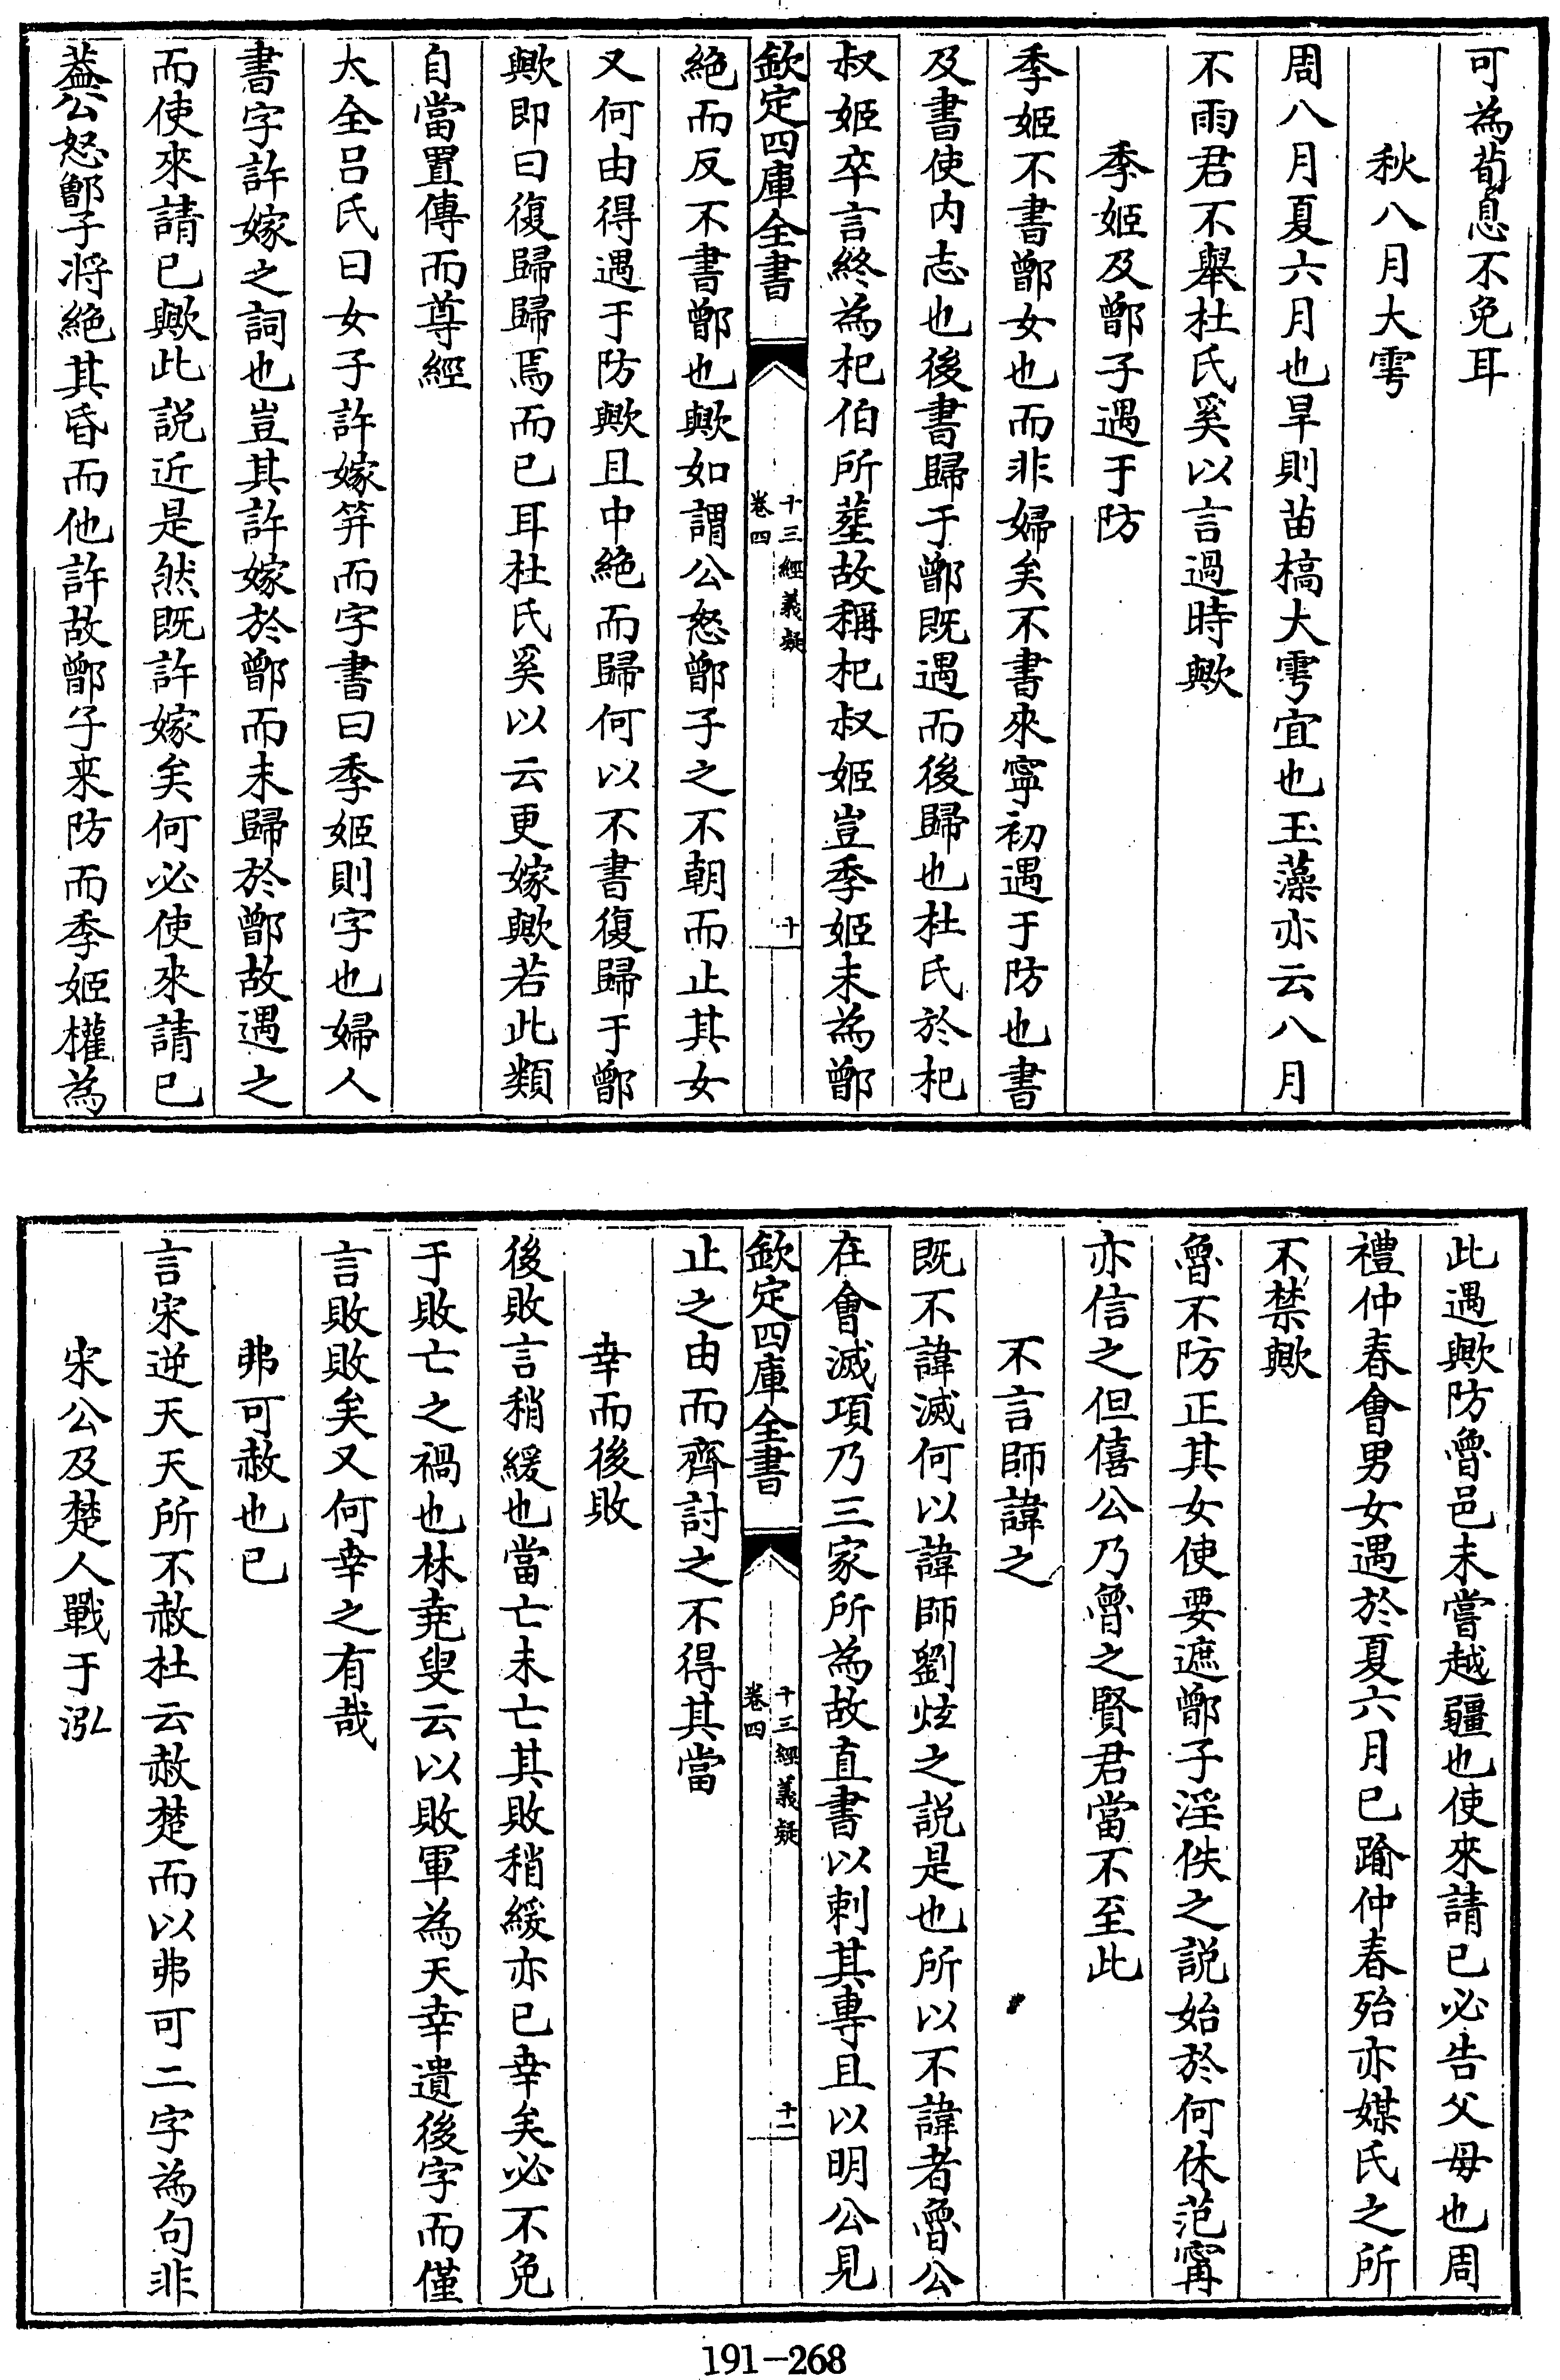 可為荀息不免耳
秋八月大雩
周八月夏六月也旱則苗槁大雩宜也玉藻亦云八月
不雨君不舉杜氏奚以言過時歟
季姬及鄫子遇于防
季姬不書鄫女也而非婦矣不書來寧初遇于防也書
及書使内志也後書歸于鄫既遇而後歸也杜氏於杞
叔姬卒言終為杞伯所塟故稱杞叔姬豈季姬未為鄫
欽定四庫全書
十三經義疑
卷四
十
絶而反不書鄫也歟如謂公怒鄫子之不朝而止其女
又何由得遇于防歟且中絶而歸何以不書復歸于鄫
歟即曰復歸歸焉而已耳杜氏奚以云更嫁歟若此類
自當置傳而尊經
大全吕氏曰女子許嫁笄而字書曰季姬則字也婦人
書字許嫁之詞也豈其許嫁於鄫而未歸於鄫故遇之
而使來請已歟此説近是然既許嫁矣何必使來請已
葢公怒鄫子将絶其昏而他許故鄫子来防而季姬權為
此遇歟防魯邑未嘗越疆也使來請已必告父母也周
禮仲春會男女遇於夏六月已踰仲春殆亦媒氏之所
不禁歟
魯不防正其女使要遮鄫子淫佚之説始於何休范寗
亦信之但僖公乃魯之賢君當不至此
不言師諱之
既不諱滅何以諱師劉炫之説是也所以不諱者魯公
在會滅項乃三家所為故直書以刺其専且以明公見
欽定四庫全書
十三經義疑
卷四
十一
止之由而齊討之不得其當
幸而後敗
後敗言稍緩也當亡未亡其敗稍緩亦已幸矣必不免
于敗亡之禍也林堯叟云以敗軍為天幸遺後字而僅
言敗敗矣又何幸之有哉
弗可赦也已
言宋逆天天所不赦杜云赦楚而以弗可二字為句非
宋公及楚人戰于泓
191-268